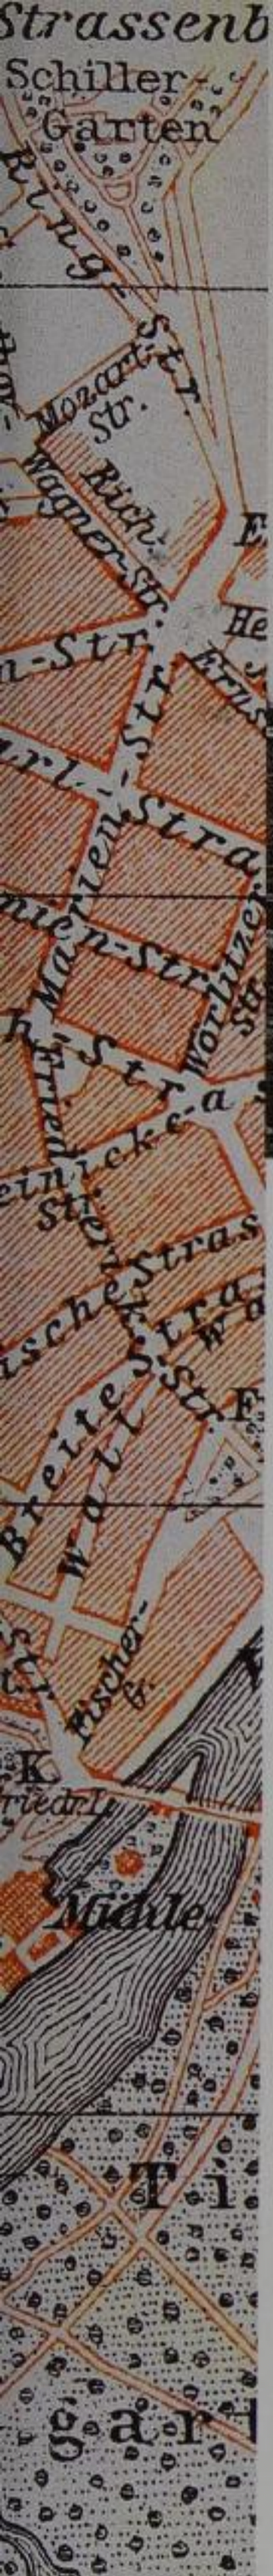 Strassenb
Schiller-
Garten
Ring-Str.
Mozart-
Str.
Rich.
Wagner-Str.
n-Str.
He
Erns
arl-Stra
Marien-Str.
nien-Str.
Wörlitzer
Str.
h Stra s
Fried
einicke-
Str.
ische Stras
Breite Stra
Wall
Wa
Str.
F
Str.
Fischer-
G.
K
Friedr. I.
Mühle
Ti
gart